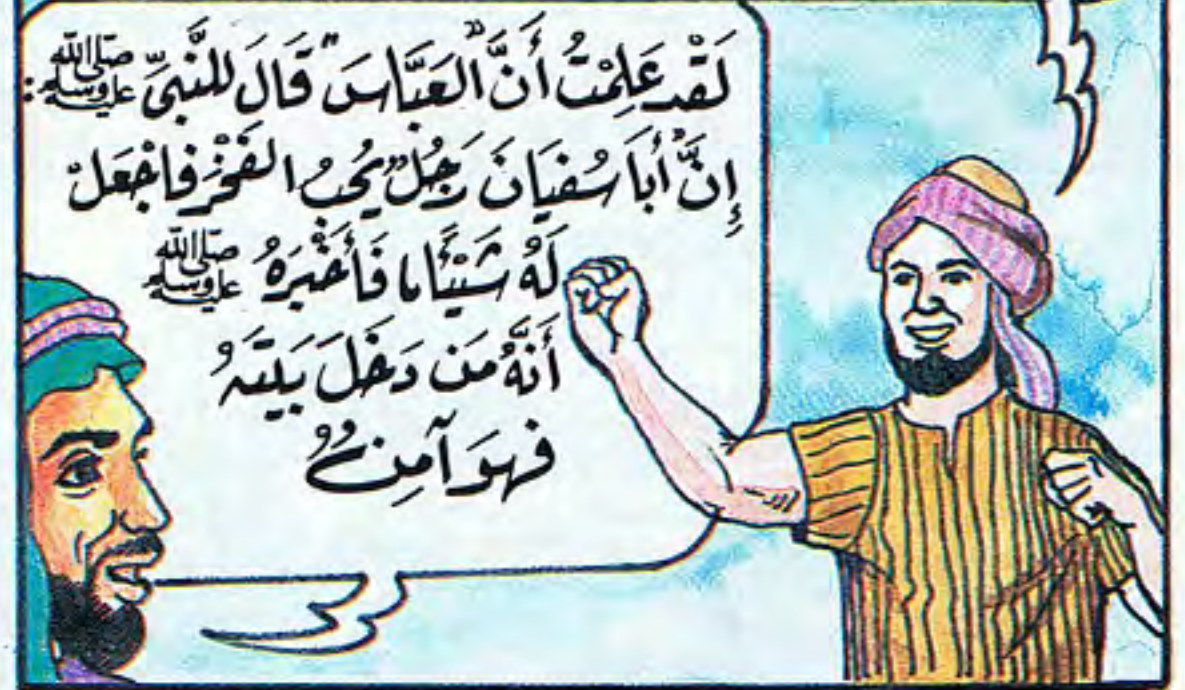 لَقَدْ عَلِمْتُ أَنَّ "الْعَبَّاسَ" قَالَ لِلنَّبِيِّ ﷺ:
إِنَّ أَبَا سُفْيَانَ رَجُلٌ يُحِبُّ الفَخْرَ فَاجْعَلْ
لَهُ شَيْئًا مَا فَأَخْبَرَهُ ﷺ
أَنَّهُ مَن دَخَلَ بَيْتَهُ
فَهُوَ آمِنٌ